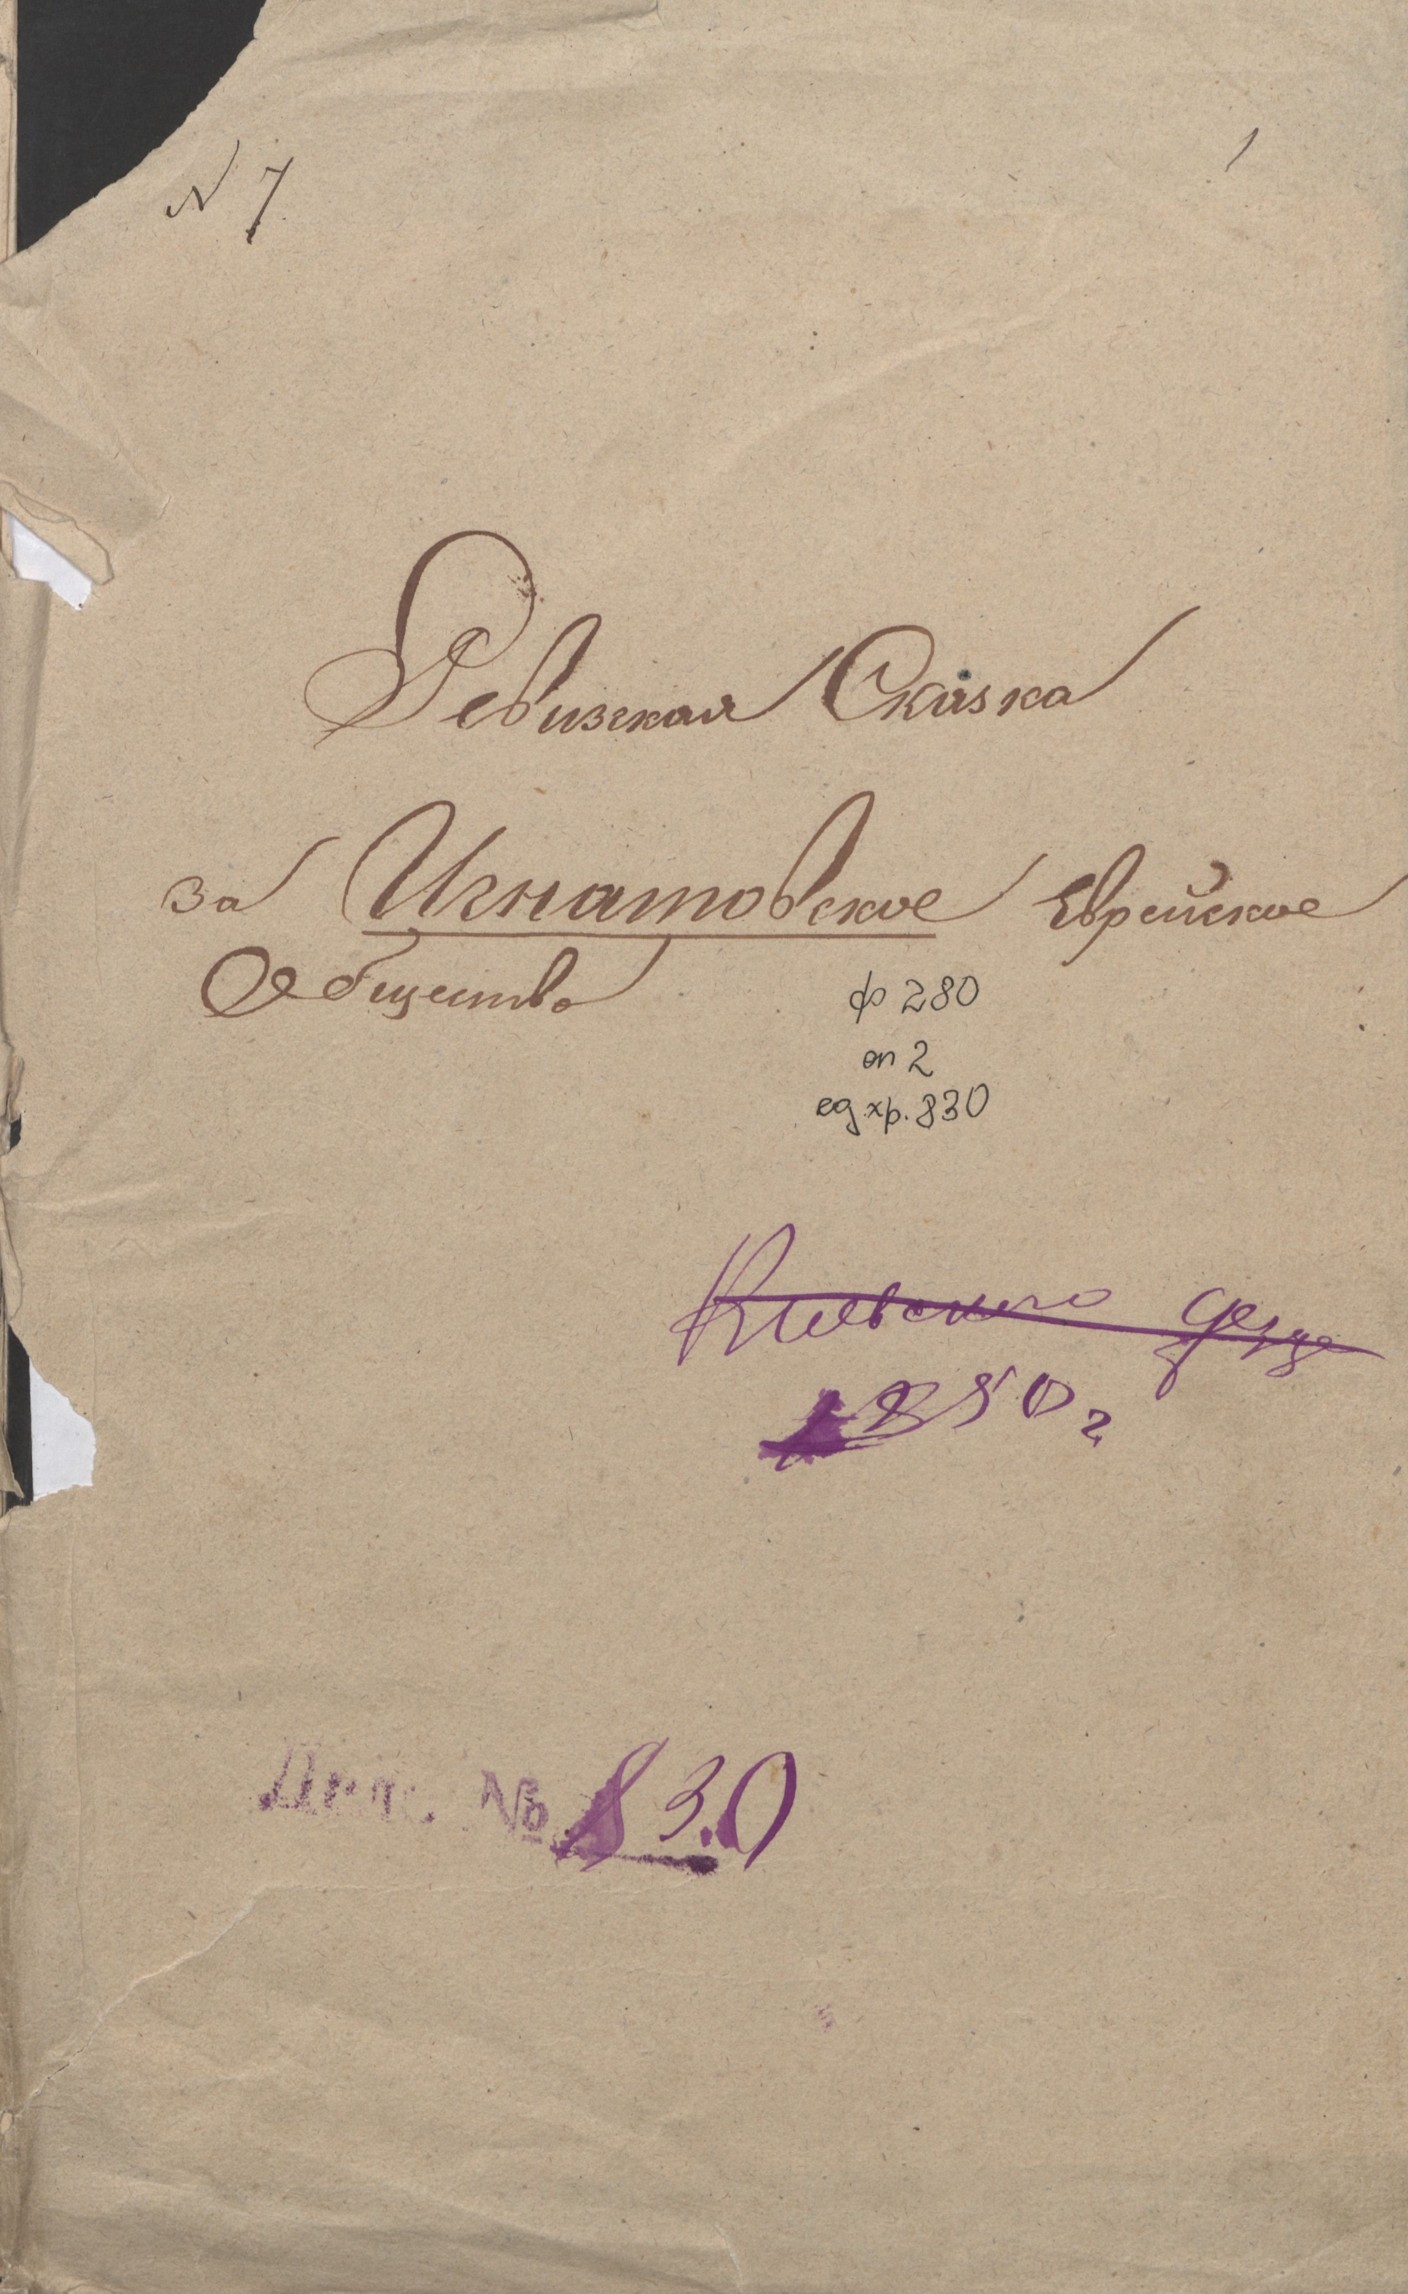 N 7
1
Ревизская Сказка
за Игнатовское Еврейское
Общество
ф 280
оп 2
ед.хр. 830
Киевского уезда
1850 г
№ 830